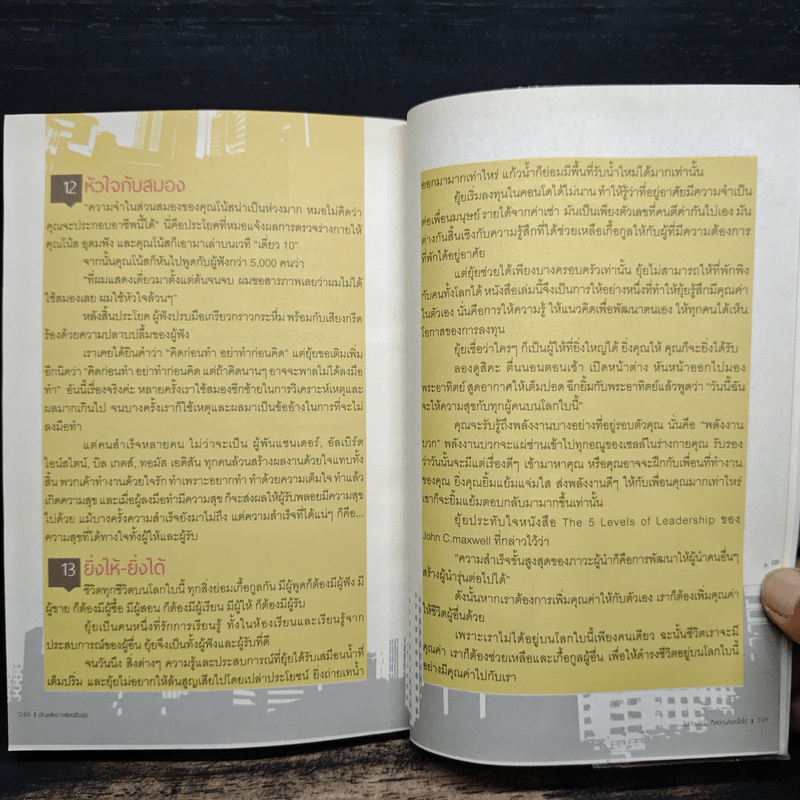 12 หัวใจกับสมอง
"ความจำในส่วนสมองของคุณโน้สน่าเป็นห่วงมาก หมอไม่คิดว่า
คุณจะประกอบอาชีพนี้ได้" นี่คือประโยคที่หมอแจ้งผลการตรวจร่างกายให้
คุณโน้ส อุดมฟัง และคุณโน้สก็เอามาเล่าบนเวที "เดี่ยว 10"
จากนั้นคุณโน้สก็หันไปพูดกับผู้ฟังกว่า 5,000 คนว่า
"ที่ผมแสดงเดี่ยวมาตั้งแต่ต้นจนจบ ผมขอสารภาพเลยว่าผมไม่ได้
ใช้สมองเลย ผมใช้หัวใจล้วนๆ"
หลังสิ้นประโยค ผู้ฟังปรบมือเกรียวกราวกระหึ่ม พร้อมกับเสียงกรีด
ร้องด้วยความปลาบปลื้มของผู้ฟัง
เราเคยได้ยินคำว่า "คิดก่อนทำ อย่าทำก่อนคิด" แต่ยุ้ยขอเติมเพิ่ม
อีกนิดว่า "คิดก่อนทำ อย่าทำก่อนคิด แต่ถ้าคิดนานๆ อาจจะพาลไม่ได้ลงมือ
ทำ" อันนี้เรื่องจริงค่ะ หลายครั้งเราใช้สมองซีกซ้ายในการวิเคราะห์เหตุและ
ผลมากเกินไป จนบางครั้งเราก็ใช้เหตุและผลมาเป็นข้ออ้างในการที่จะไม่
ลงมือทำ
แต่คนสำเร็จหลายคน ไม่ว่าจะเป็น ผู้พันแซนเดอร์, อัลเบิร์ต
ไอน์สไตน์, บิล เกตส์, ทอมัส เอดิสัน ทุกคนล้วนสร้างผลงานด้วยใจแทบทั้ง
สิ้น พวกเค้าทำงานด้วยใจรัก ทำเพราะอยากทำ ทำด้วยความเต็มใจ ทำแล้ว
เกิดความสุข และเมื่อผู้ลงมือทำมีความสุข ก็จะส่งผลให้ผู้รับพลอยมีความสุข
ไปด้วย แม้บางครั้งความสำเร็จยังมาไม่ถึง แต่ความสำเร็จที่ได้แน่ๆ ก็คือ...
ความสุขที่ได้ทางใจทั้งผู้ให้และผู้รับ
13 ยิ่งให้-ยิ่งได้
ชีวิตทุกชีวิตบนโลกใบนี้ ทุกสิ่งย่อมเกื้อกูลกัน มีผู้พูดก็ต้องมีผู้ฟัง มี
ผู้ขาย ก็ต้องมีผู้ซื้อ มีผู้สอน ก็ต้องมีผู้เรียน มีผู้ให้ ก็ต้องมีผู้รับ
ยุ้ยเป็นคนหนึ่งที่รักการเรียนรู้ ทั้งในห้องเรียนและเรียนรู้จาก
ประสบการณ์ของผู้อื่น ยุ้ยจึงเป็นทั้งผู้ฟังและผู้รับที่ดี
จนวันนึง สิ่งต่างๆ ความรู้และประสบการณ์ที่ยุ้ยได้รับเสมือนน้ำที่
เต็มปริ่ม และยุ้ยไม่อยากให้ล้นสูญเสียไปโดยเปล่าประโยชน์ ยิ่งถ่ายเทน้ำ
248
ออกมามากเท่าไหร่ แก้วน้ำก็ย่อมมีพื้นที่รับน้ำใหม่ได้มากเท่านั้น
ยุ้ยเริ่มลงทุนในคอนโดได้ไม่นาน ทำให้รู้ว่าที่อยู่อาศัยมีความจำเป็น
ต่อเพื่อนมนุษย์ รายได้จากค่าเช่า มันเป็นเพียงตัวเลขที่คนตีค่ากันไปเอง มัน
ต่างกันสิ้นเชิงกับความรู้สึกที่ได้ช่วยเหลือเกื้อกูลให้กับผู้ที่มีความต้องการ
ที่พักได้อยู่อาศัย
แต่ยุ้ยช่วยได้เพียงบางครอบครัวเท่านั้น ยุ้ยไม่สามารถให้ที่พักพิง
กับคนทั้งโลกได้ หนังสือเล่มนี้จึงเป็นการให้อย่างหนึ่งที่ทำให้ยุ้ยรู้สึกมีคุณค่า
ในตัวเอง นั่นคือการให้ความรู้ ให้แนวคิดเพื่อพัฒนาตนเอง ให้ทุกคนได้เห็น
โอกาสของการลงทุน
ยุ้ยเชื่อว่าใครๆ ก็เป็นผู้ให้ที่ยิ่งใหญ่ได้ ยิ่งคุณให้ คุณก็จะยิ่งได้รับ
ลองดูสิคะ ตื่นนอนตอนเช้า เปิดหน้าต่าง หันหน้าออกไปมอง
พระอาทิตย์ สูดอากาศให้เต็มปอด ฉีกยิ้มกับพระอาทิตย์แล้วพูดว่า "วันนี้ฉัน
จะให้ความสุขกับทุกผู้คนบนโลกใบนี้"
คุณจะรับรู้ถึงพลังงานบางอย่างที่อยู่รอบตัวคุณ นั่นคือ "พลังงาน
บวก" พลังงานบวกจะแผ่ซ่านเข้าไปทุกอณูของเซลล์ในร่างกายคุณ รับรอง
ว่าวันนั้นจะมีแต่เรื่องดีๆ เข้ามาหาคุณ หรือคุณอาจจะฝึกกับเพื่อนที่ทำงาน
ของคุณ ยิ่งคุณยิ้มแย้มแจ่มใส ส่งพลังงานดีๆ ให้กับเพื่อนคุณมากเท่าไหร่
เขาก็จะยิ้มแย้มตอบกลับมามากขึ้นเท่านั้น
ยุ้ยประทับใจหนังสือ The 5 Levels of Leadership ของ
John C.maxwell ที่กล่าวไว้ว่า
"ความสำเร็จขั้นสูงสุดของภาวะผู้นำก็คือการพัฒนาให้ผู้นำคนอื่นๆ
สร้างผู้นำรุ่นต่อไปได้"
ดังนั้นหากเราต้องการเพิ่มคุณค่าให้กับตัวเอง เราก็ต้องเพิ่มคุณค่า
ให้ชีวิตผู้อื่นด้วย
เพราะเราไม่ได้อยู่บนโลกใบนี้เพียงคนเดียว ฉะนั้นชีวิตเราจะมี
คุณค่า เราก็ต้องช่วยเหลือและเกื้อกูลผู้อื่น เพื่อให้ดำรงชีวิตอยู่บนโลกใบนี้
อย่างมีคุณค่าไปกับเรา
249